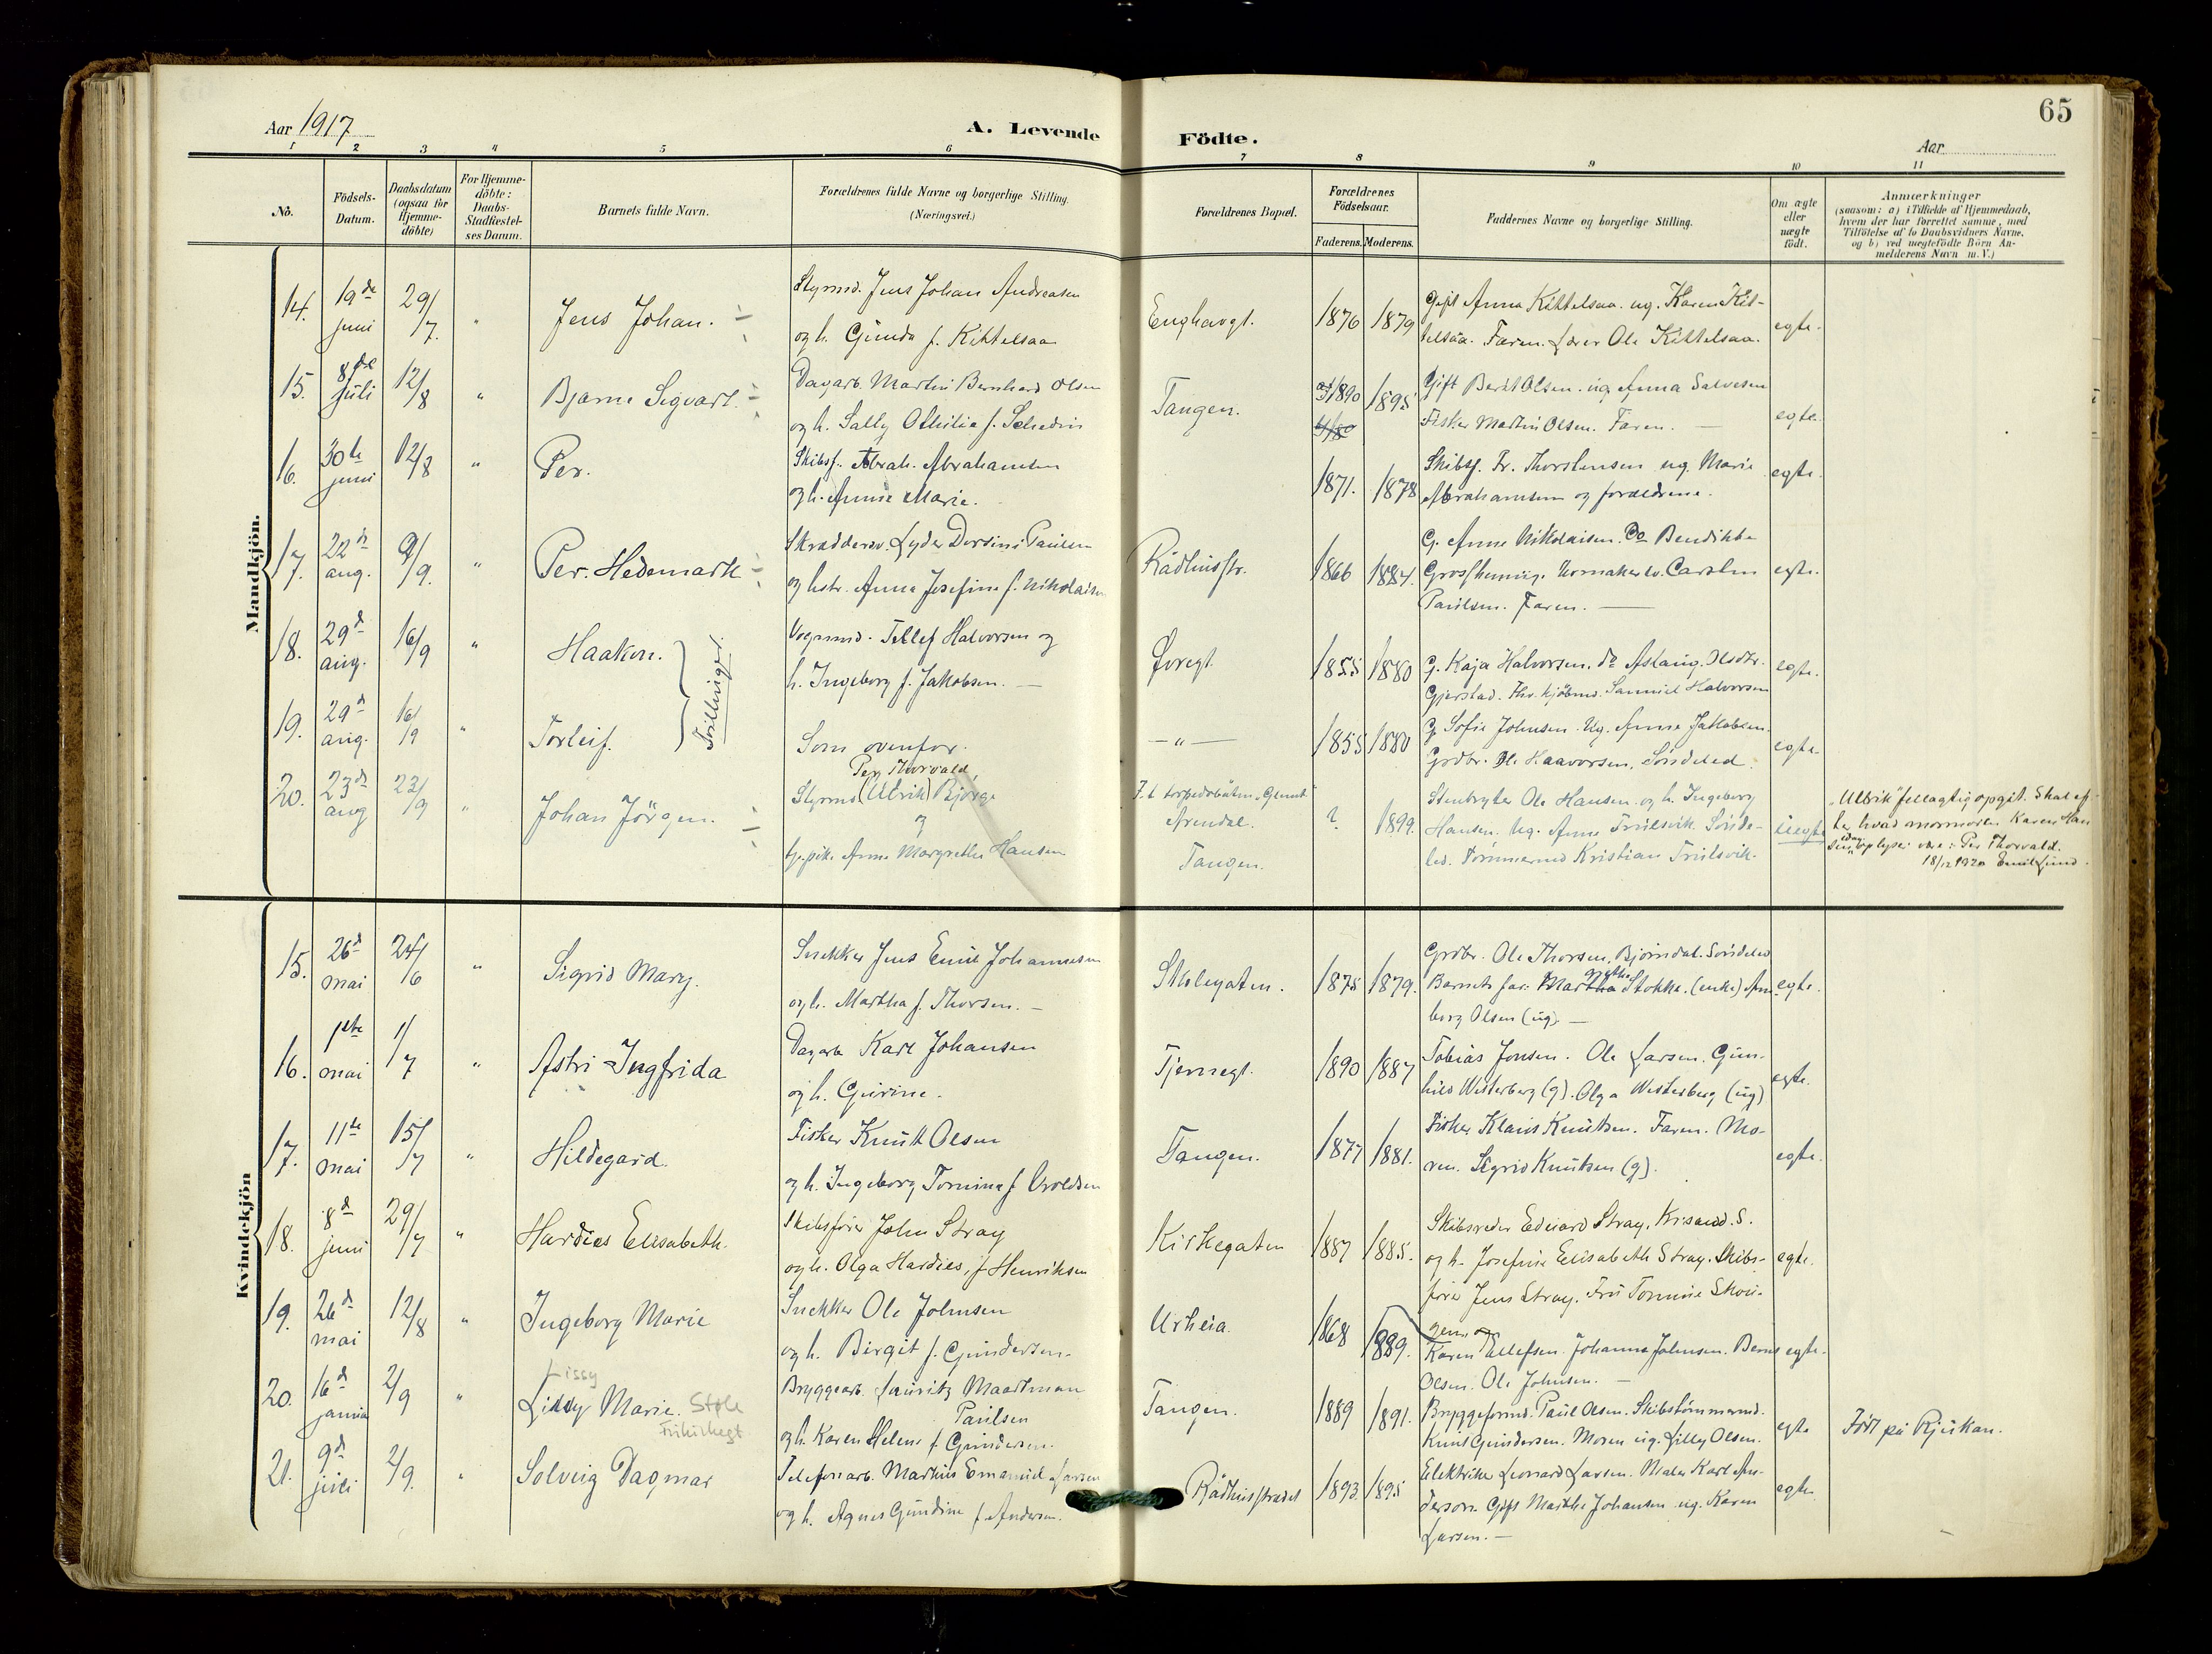 65
Aar 1917
A. Levende
Födte.
Aar
1 2 3 4 5 6 7 8 9 10 11
No.
Födsels-
Datum.
Daabsdatum
(ogsaa for
Hjemme-
döbte)
For Hjemme-
döbte:
Daabs-
Stadfæstel-
ses Datum.
Barnets fulde Navn.
Forældrenes fulde Navne og borgerlige Stilling.
(Næringsvei.)
Forældrenes Bopæl.
Forældrenes
Födselsaar.
Faderens. Moderens.
Faddernes Navne og borgerlige Stilling.
Om ægte
eller
uægte
født.
Anmærkninger
(saasom: a) i Tilfælde af Hjemmedaab,
hvem der har forrettet samme, med
Tilföielse af to Daabsvidners Navne.
og b) ved uægtefödte Börn An-
melderens Navn m.V.)
Mandkjön.
14. 19de juni 29/7. " Jens Johan.
Styrmd. Jens Johan Andreasen
og h. Gunda f. Kittelsaa
Enghavgt. 1876 1879
Gift Anna Kittelsaa. ug. Karen Kit-
telsaa. Faren. Lærer Ole Kittelsaa.
egte.
15. 8de juli 12/8 " Bjarne Sigvart.
Dagarb. Martin Bernhard Olsen
og h. Sally Othilie f. Schedin
Tangen. 1890 1895
Gift Berit Olsen. ug. Anna Salvesen
Fisker Martin Olsen. Faren. —
egte.
16. 30te juni 12/8 " Per.
Skibsf. Abrah. Abrahamsen
og h. Annie Marie.
1871. 1878
Skibsf. Fr. Thorstensen ug. Marie
Abrahamsen og forældrene.
egte.
17. 22de aug. 9/9. " Per. Hedemark
Skræddersv. Lyder Dorsini Paulsen
og hstr. Anna Josefine f. Nikolaisen
Rådhusstr. 1866 1884.
G. Anne Nikolaisen. Do Bendikte
Grosshennig. Urmakersv. Carsten
Paulsen. Faren. —
egte.
18. 29d aug. 16/9 " Haakon.
Tvillinger.
Vognmd. Tellef Halvorsen og
h. Ingeborg f. Jakobsen. —
Øvregt. 1855 1880
G. Kaja Halvorsen. do Aslaug Olsdtr.
Gjerstad. Fhv. kjöbmd. Samuel Halvorsen
egte.
19. 29d aug. 16/9 " Torleif.
Som ovenfor.
—"— 1855 1880
G. Sofie Johnsen. Ug. Anne Jakobsen.
Grdbr. Ole Haavorsen, Søndeled.
egte.
20. 23de aug 23/9 " Johan Jörgen.
Per Thorvald,
Styrmd (Ulrik) Bjørge
og
tj.pike Anne Margrethe Hansen
F.t torpedobåten "Gnist"
Arendal.
Tangen.
? 1899.
Stenbryter Ole Hansen og h. Ingeborg
Hansen. Ug. Anne Trulsvik Sönde-
led. Tömmermd Kristian Trulsvik.
uegte
"Ulbrik" feilagtig opgit. Skal ef-
ter hvad mormoren Karen Han
sen idag oplyser være: Per Thorvald.
18/12 1920 Emil Lund.
Kvindekjön
15. 26d mai 24/6 " Sigrid Mary.
Snekker Jens Emil Johannesen
og h. Martha f. Thorsen. —
Skolegaten. 1875 1879.
Grdbr. Ole Thorsen, Bjørndal. Søndeled
Barnets far. Martha Stokke. (enke) Am
borg Olsen (ug). —
egte.
16. 1ste mai 1/7 " Astri=Ingfrida
Dagarb Karl Johansen
og h. Gurine.
Tjernegt. 1890 1887
Tobias Jonsen. Ole Larsen. Gun-
hild Westerberg (g). Olga Westerberg (ug)
egte.
17. 11te mai 15/7 " Hildegard.
Fisker Knut Olsen
og h. Ingeborg Tomine f. Oroldsen
Tangen. 1877 1881.
Fisker Klaus Knutsen. Faren. Mo-
ren. Sigrid Knutsen (g).
egte.
18. 8d juni 29/7 " Hardies Elisabeth.
Skibsfører John Stray
og h. Olga Hardies, f. Henriksen
Kirkegaten 1887 1885.
Skibsreder Edvard Stray, Krsand. S.
og h. Josefine Elisabeth Stray. Skibs-
fører Jens Stray. Fru Tomine Skou-
gen.
egte.
19. 26d mai 12/8 " Ingeborg Marie
Snekker Ole Johnsen
og h. Birgit f. Gundersen.
Urheia. 1868 1889.
Karen Ellefsen. Johanna Johnsen. Bernt
Olsen. Ole Johnsen. —
egte.
20. 16d januar 2/9 " Lissy Marie.
Lissy
Støle
Frikirkegt
Bryggearb. Lauritz Maartman
Paulsen
og h. Karen Helene f. Gundersen.
Tangen. 1889 1891.
Bryggeformd. Paul Olsen. Skibstömmermd.
Knut Gundersen. Moren ug. Lilly Olsen.
egte
Født på Rjukan.
21. 9d juli 2/9. " Solveig Dagmar
Telefonarb. Markus Emanuel Larsen
og h. Agnes Gundine f. Andersen.
Rådhusstrædet 1893. 1895
Elektriker Leonard Larsen. Maler Karl An-
derson. Gift Marthe Johansen ug. Karen
Larsen. —
egte